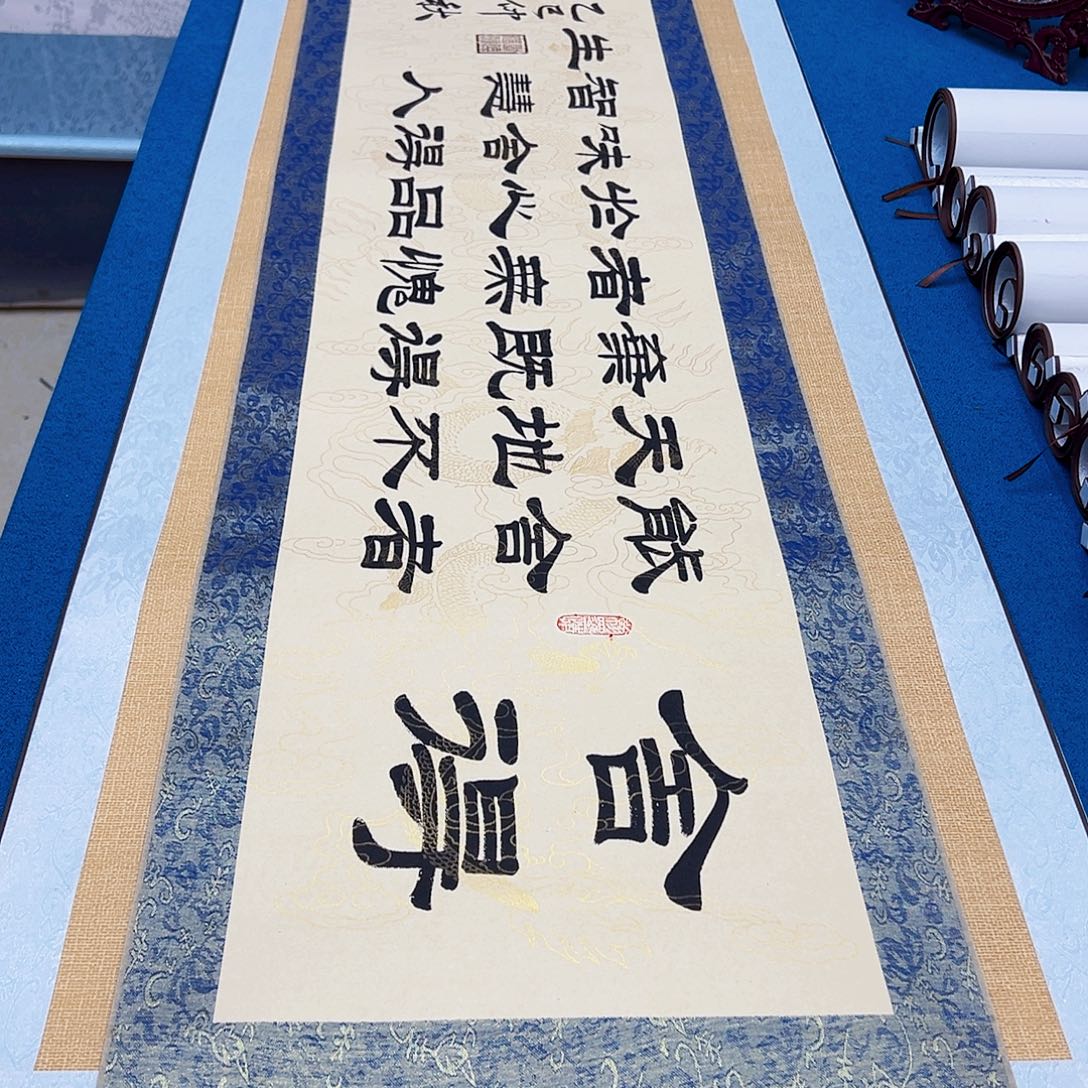 舍得
能舍者
天地不
棄既得
者無愧
於心品
味舍得
智慧人
生
乙巳仲秋